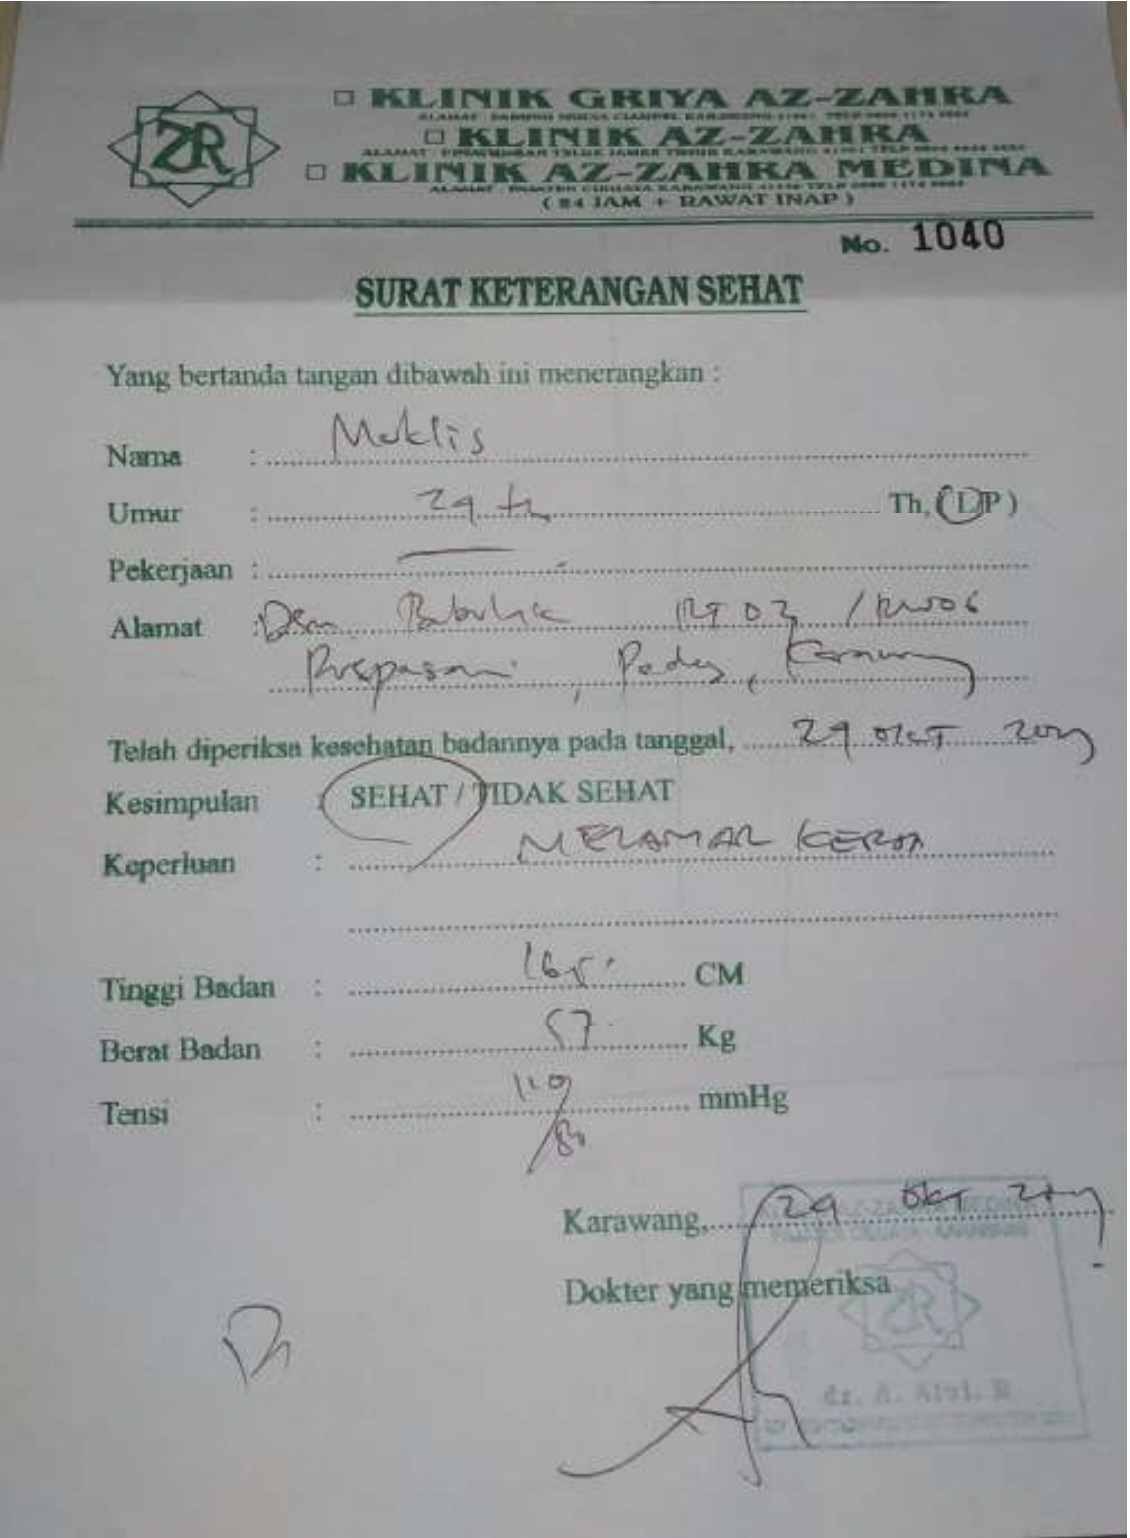 ZR
KLINIK GRIYA AZ-ZAHRA
KLINIK AZ-ZAHRA
KLINIK AZ-ZAHRA MEDINA
( 24 JAM + RAWAT INAP )
No. 1040
SURAT KETERANGAN SEHAT
Yang bertanda tangan dibawah ini menerangkan :
Nama : Muklis
Umur : 29 th Th, ( L/P )
Pekerjaan :
Alamat : Dsn RT 03 / RW 06
Puspasari, Pedes, Karawang
Telah diperiksa kesehatan badannya pada tanggal, 29 OKT
Kesimpulan : SEHAT / TIDAK SEHAT
Keperluan : MELAMAR KERJA
Tinggi Badan : 165 CM
Berat Badan : 57 Kg
Tensi : 110/80 mmHg
Karawang, 29 Okt
Dokter yang memeriksa
ZR
dr. A. Alvi. R